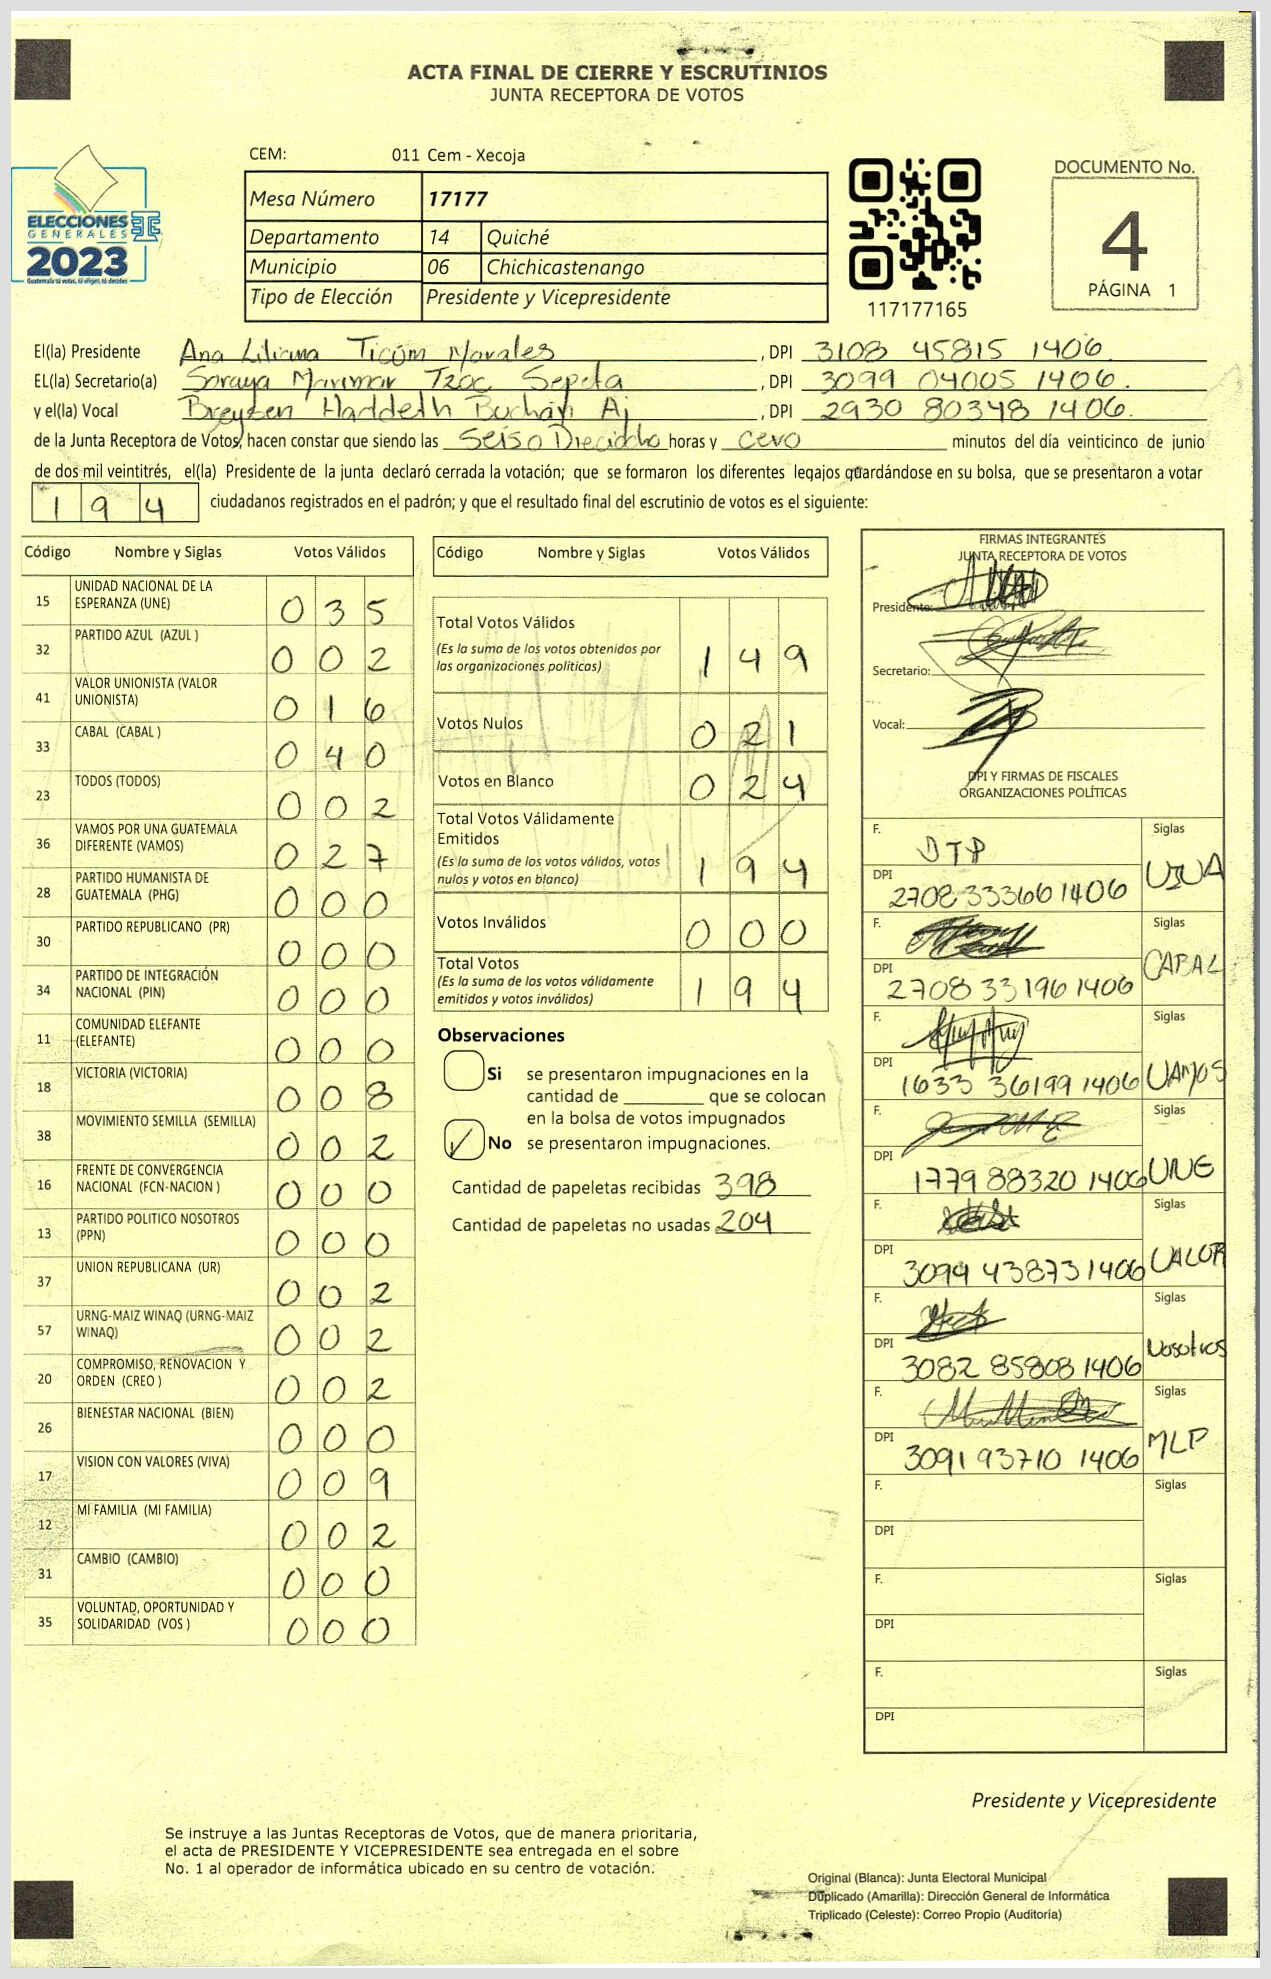 ACTA FINAL DE CIERRE Y ESCRUTINIOS
JUNTA RECEPTORA DE VOTOS
CEM: 011 Cem - Xecoja
ELECCIONES
GENERALES
2023
Guatemala tú votas, tú eliges, tú decides
Mesa Número 17177
Departamento 14 Quiché
Municipio 06 Chichicastenango
Tipo de Elección Presidente y Vicepresidente
117177165
DOCUMENTO No.
4
PÁGINA 1
El(la) Presidente Ana Liliana Ticúm Morales, DPI 3108 45815 1406.
EL(la) Secretario(a) Soraya Marimar Tzoc Sepeta, DPI 3099 04005 1406.
y el(la) Vocal Haddeth Aj, DPI 2930 80348 1406.
de la Junta Receptora de Votos, hacen constar que siendo las horas y cero minutos del día veinticinco de junio
de dos mil veintitrés, el(la) Presidente de la junta declaró cerrada la votación; que se formaron los diferentes legajos guardándose en su bolsa, que se presentaron a votar
194 ciudadanos registrados en el padrón; y que el resultado final del escrutinio de votos es el siguiente:
Código Nombre y Siglas Votos Válidos
15 UNIDAD NACIONAL DE LA ESPERANZA (UNE) 035
32 PARTIDO AZUL (AZUL ) 002
41 VALOR UNIONISTA (VALOR UNIONISTA) 016
33 CABAL (CABAL ) 040
23 TODOS (TODOS) 002
36 VAMOS POR UNA GUATEMALA DIFERENTE (VAMOS) 027
28 PARTIDO HUMANISTA DE GUATEMALA (PHG) 000
30 PARTIDO REPUBLICANO (PR) 000
34 PARTIDO DE INTEGRACIÓN NACIONAL (PIN) 000
11 COMUNIDAD ELEFANTE (ELEFANTE) 000
18 VICTORIA (VICTORIA) 008
38 MOVIMIENTO SEMILLA (SEMILLA) 002
16 FRENTE DE CONVERGENCIA NACIONAL (FCN-NACION ) 000
13 PARTIDO POLITICO NOSOTROS (PPN) 000
37 UNION REPUBLICANA (UR) 002
57 URNG-MAIZ WINAQ (URNG-MAIZ WINAQ) 002
20 COMPROMISO, RENOVACION Y ORDEN (CREO ) 002
26 BIENESTAR NACIONAL (BIEN) 000
17 VISION CON VALORES (VIVA) 009
12 MI FAMILIA (MI FAMILIA) 002
31 CAMBIO (CAMBIO) 000
35 VOLUNTAD, OPORTUNIDAD Y SOLIDARIDAD (VOS ) 000
Código Nombre y Siglas Votos Válidos
Total Votos Válidos 149
(Es la suma de los votos obtenidos por
las organizaciones políticas)
Votos Nulos 021
Votos en Blanco 024
Total Votos Válidamente
Emitidos 194
(Es la suma de los votos válidos, votos
nulos y votos en blanco)
Votos Inválidos 000
Total Votos 194
(Es la suma de los votos válidamente
emitidos y votos inválidos)
Observaciones
Si se presentaron impugnaciones en la
cantidad de ________ que se colocan
en la bolsa de votos impugnados
No se presentaron impugnaciones.
Cantidad de papeletas recibidas 398
Cantidad de papeletas no usadas 204
FIRMAS INTEGRANTES
JUNTA RECEPTORA DE VOTOS
Presidente:
Secretario:
Vocal:
DPI Y FIRMAS DE FISCALES
ORGANIZACIONES POLÍTICAS
F. DTP Siglas
DPI 2708 33366 1406 VIVA
F. Siglas
DPI 2708 33196 1406 CABAL
F. Siglas
DPI 1633 36199 1406 VAMOS
F. Siglas
DPI 1779 88320 1406 UNE
F. Siglas
DPI 3094 43873 1406 VALOR
F. Siglas
DPI 3082 85808 1406 Nosotros
F. Siglas
DPI 3091 93710 1406 MLP
F. Siglas
DPI
F. Siglas
DPI
F. Siglas
DPI
Presidente y Vicepresidente
Se instruye a las Juntas Receptoras de Votos, que de manera prioritaria,
el acta de PRESIDENTE Y VICEPRESIDENTE sea entregada en el sobre
No. 1 al operador de informática ubicado en su centro de votación.
Original (Blanca): Junta Electoral Municipal
Duplicado (Amarilla): Dirección General de Informática
Triplicado (Celeste): Correo Propio (Auditoría)